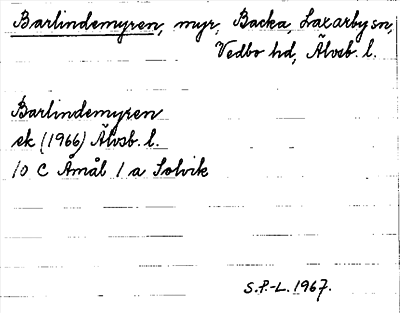 Barlindemyren, myr, Backa, Laxarby sn,
Vedbo hd, Älvsb. l.
Barlindemyren
ek (1966) Älvsb. l.
10 C Åmål 1 a Solvik
S.P.-L. 1967.